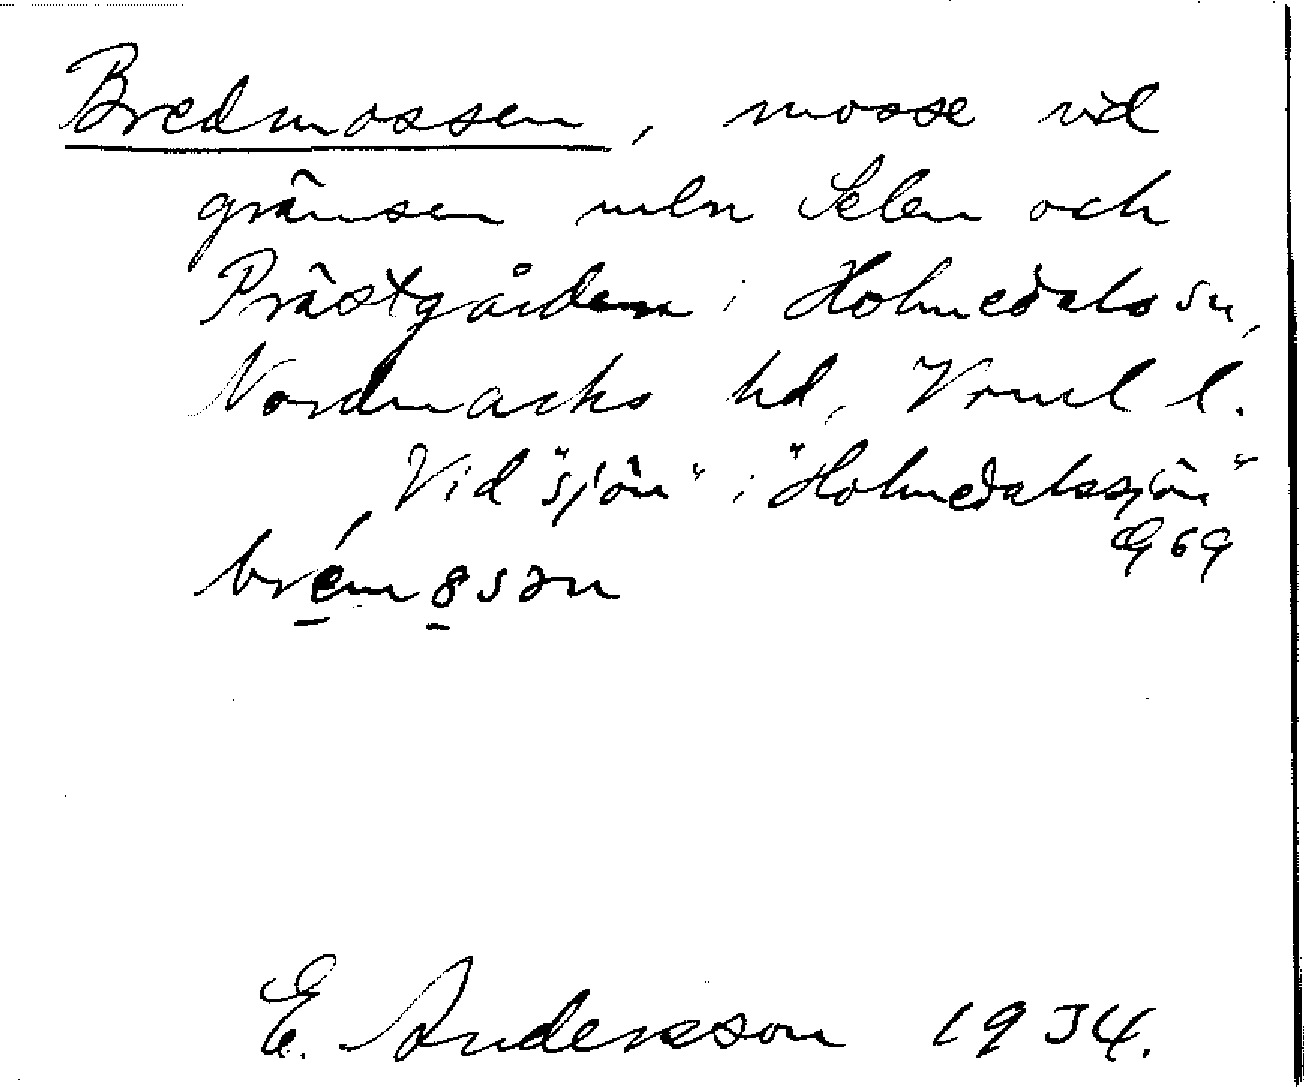 Bredmossen, mosse vid
gränsen meln Selen och
Prästgården i Holmedals sn,
Nordmarks hd, Vrml l.
Vid "sjön" i "Holmedalssjön"
G 69
brémosən
E. Andersson 1934.